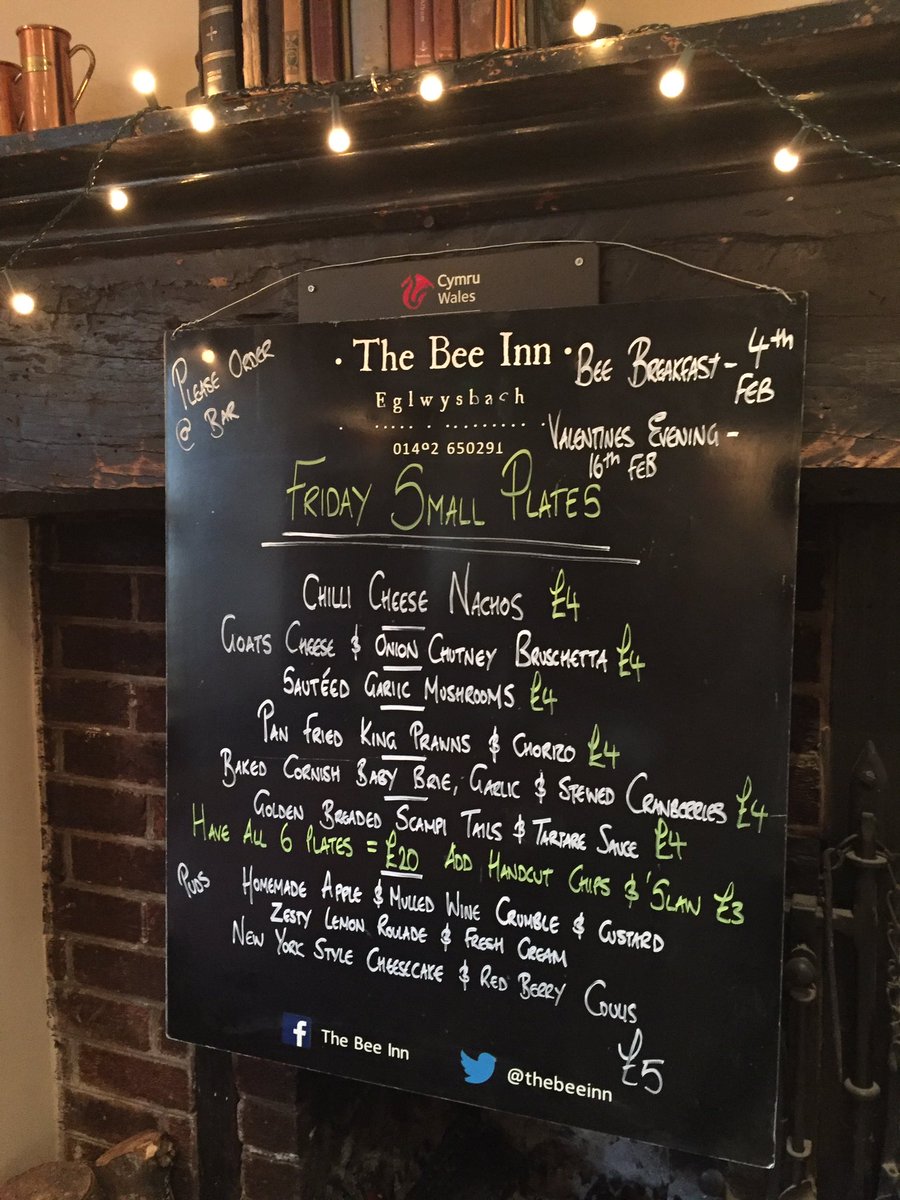 Cymru
Wales
· The Bee Inn ·
Eglwysbach
01492 650291
PLEASE ORDER
@ BAR
BEE BREAKFAST - 4th
FEB
VALENTINES EVENING -
16th FEB
FRIDAY SMALL PLATES
CHILLI CHEESE NACHOS £4
GOATS CHEESE & ONION CHUTNEY BRUSCHETTA £4
SAUTÉED GARLIC MUSHROOMS £4
PAN FRIED KING PRAWNS & CHORIZO £4
BAKED CORNISH BABY BRIE, GARLIC & STEWED CRANBERRIES £4
GOLDEN BREADED SCAMPI TAILS & TARTARE SAUCE £4
HAVE ALL 6 PLATES = £20 ADD HANDCUT CHIPS & 'SLAW £3
PUDS HOMEMADE APPLE & MULLED WINE CRUMBLE & CUSTARD
ZESTY LEMON ROULADE & FRESH CREAM
NEW YORK STYLE CHEESECAKE & RED BERRY COULIS
£5
f The Bee Inn
@thebeeinn